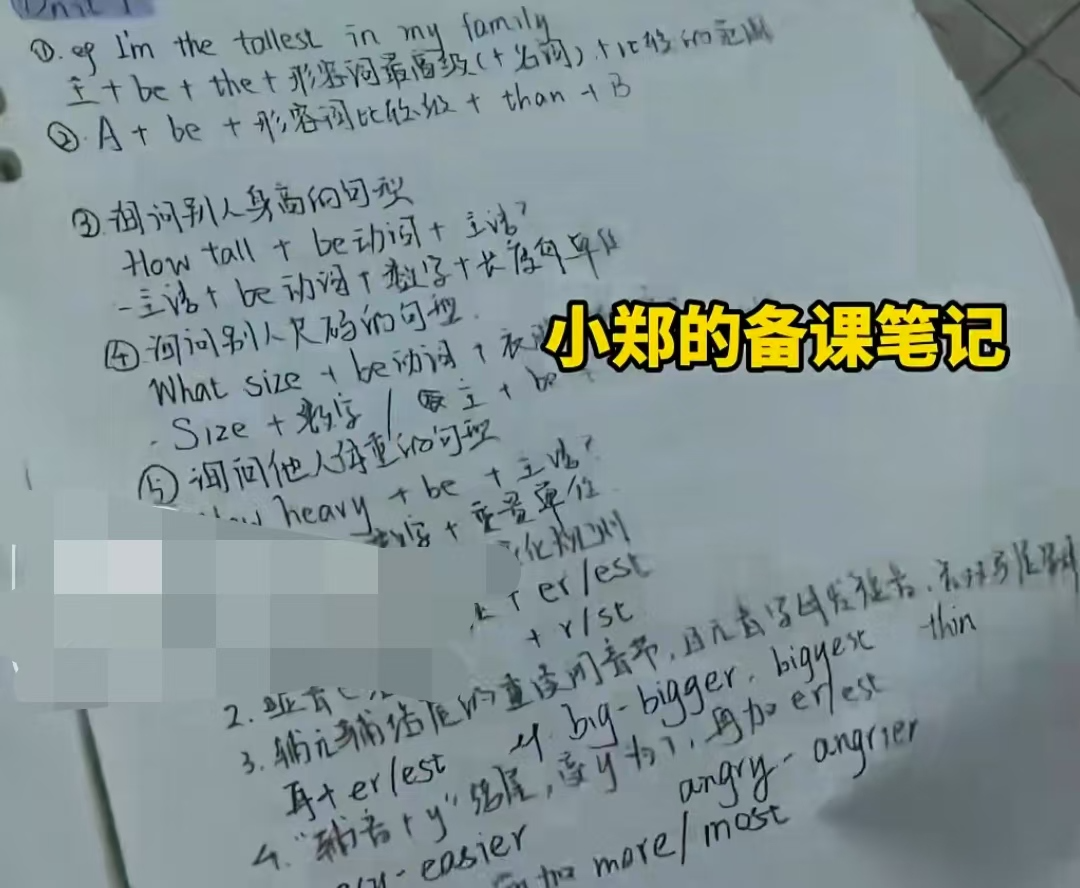 Unit 1
①. eg I'm the tallest in my family
主 + be + the + 形容词最高级(+名词) + 比较的范围
②. A + be + 形容词比较级 + than + B
③. 询问别人身高的句型
How tall + be动词 + 主语?
- 主语 + be动词 + 数字 + 长度单位
④ 询问别人尺码的句型.
What size + be动词 +
小郑的备课笔记
- Size + 数字 / 主 + be +
⑤ 询问他人体重的句型
heavy + be + 主语?
数字 + 重量单位
变化规则
+ er/est
+ r/st
2.
3. 辅元辅结尾的重读闭音节, 且元音字母发短音,
再+er/est eg. big-bigger. biggest thin
4. "辅音+y"结尾, 变y为i, 再加er/est
easier angry- angrier
more/most